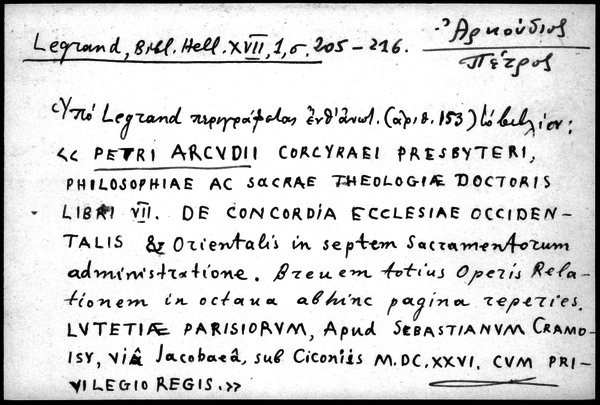 Legrand, Bibl. Hell. XVII, 1, σ. 205 – 216.
Ἀρκούδιος
Πέτρος
Ὑπό Legrand περιγράφεται ἐνθ' ἀνωτ. (ἀριθ. 153) τό βιβλίον:
« PETRI ARCVDII CORCYRAEI PRESBYTERI,
PHILOSOPHIAE AC SACRAE THEOLOGIÆ DOCTORIS
LIBRI VII. DE CONCORDIA ECCLESIAE OCCIDEN-
TALIS & Orientalis in septem Sacramentorum
administratione. Breuem totius Operis Rela-
tionem in octaua abhinc pagina reperies.
LVTETIÆ PARISIORVM, Apud SEBASTIANVM CRAMO-
ISY, viâ Jacobaeâ, sub Ciconiis M.DC.XXVI. CVM PRI-
VILEGIO REGIS.»